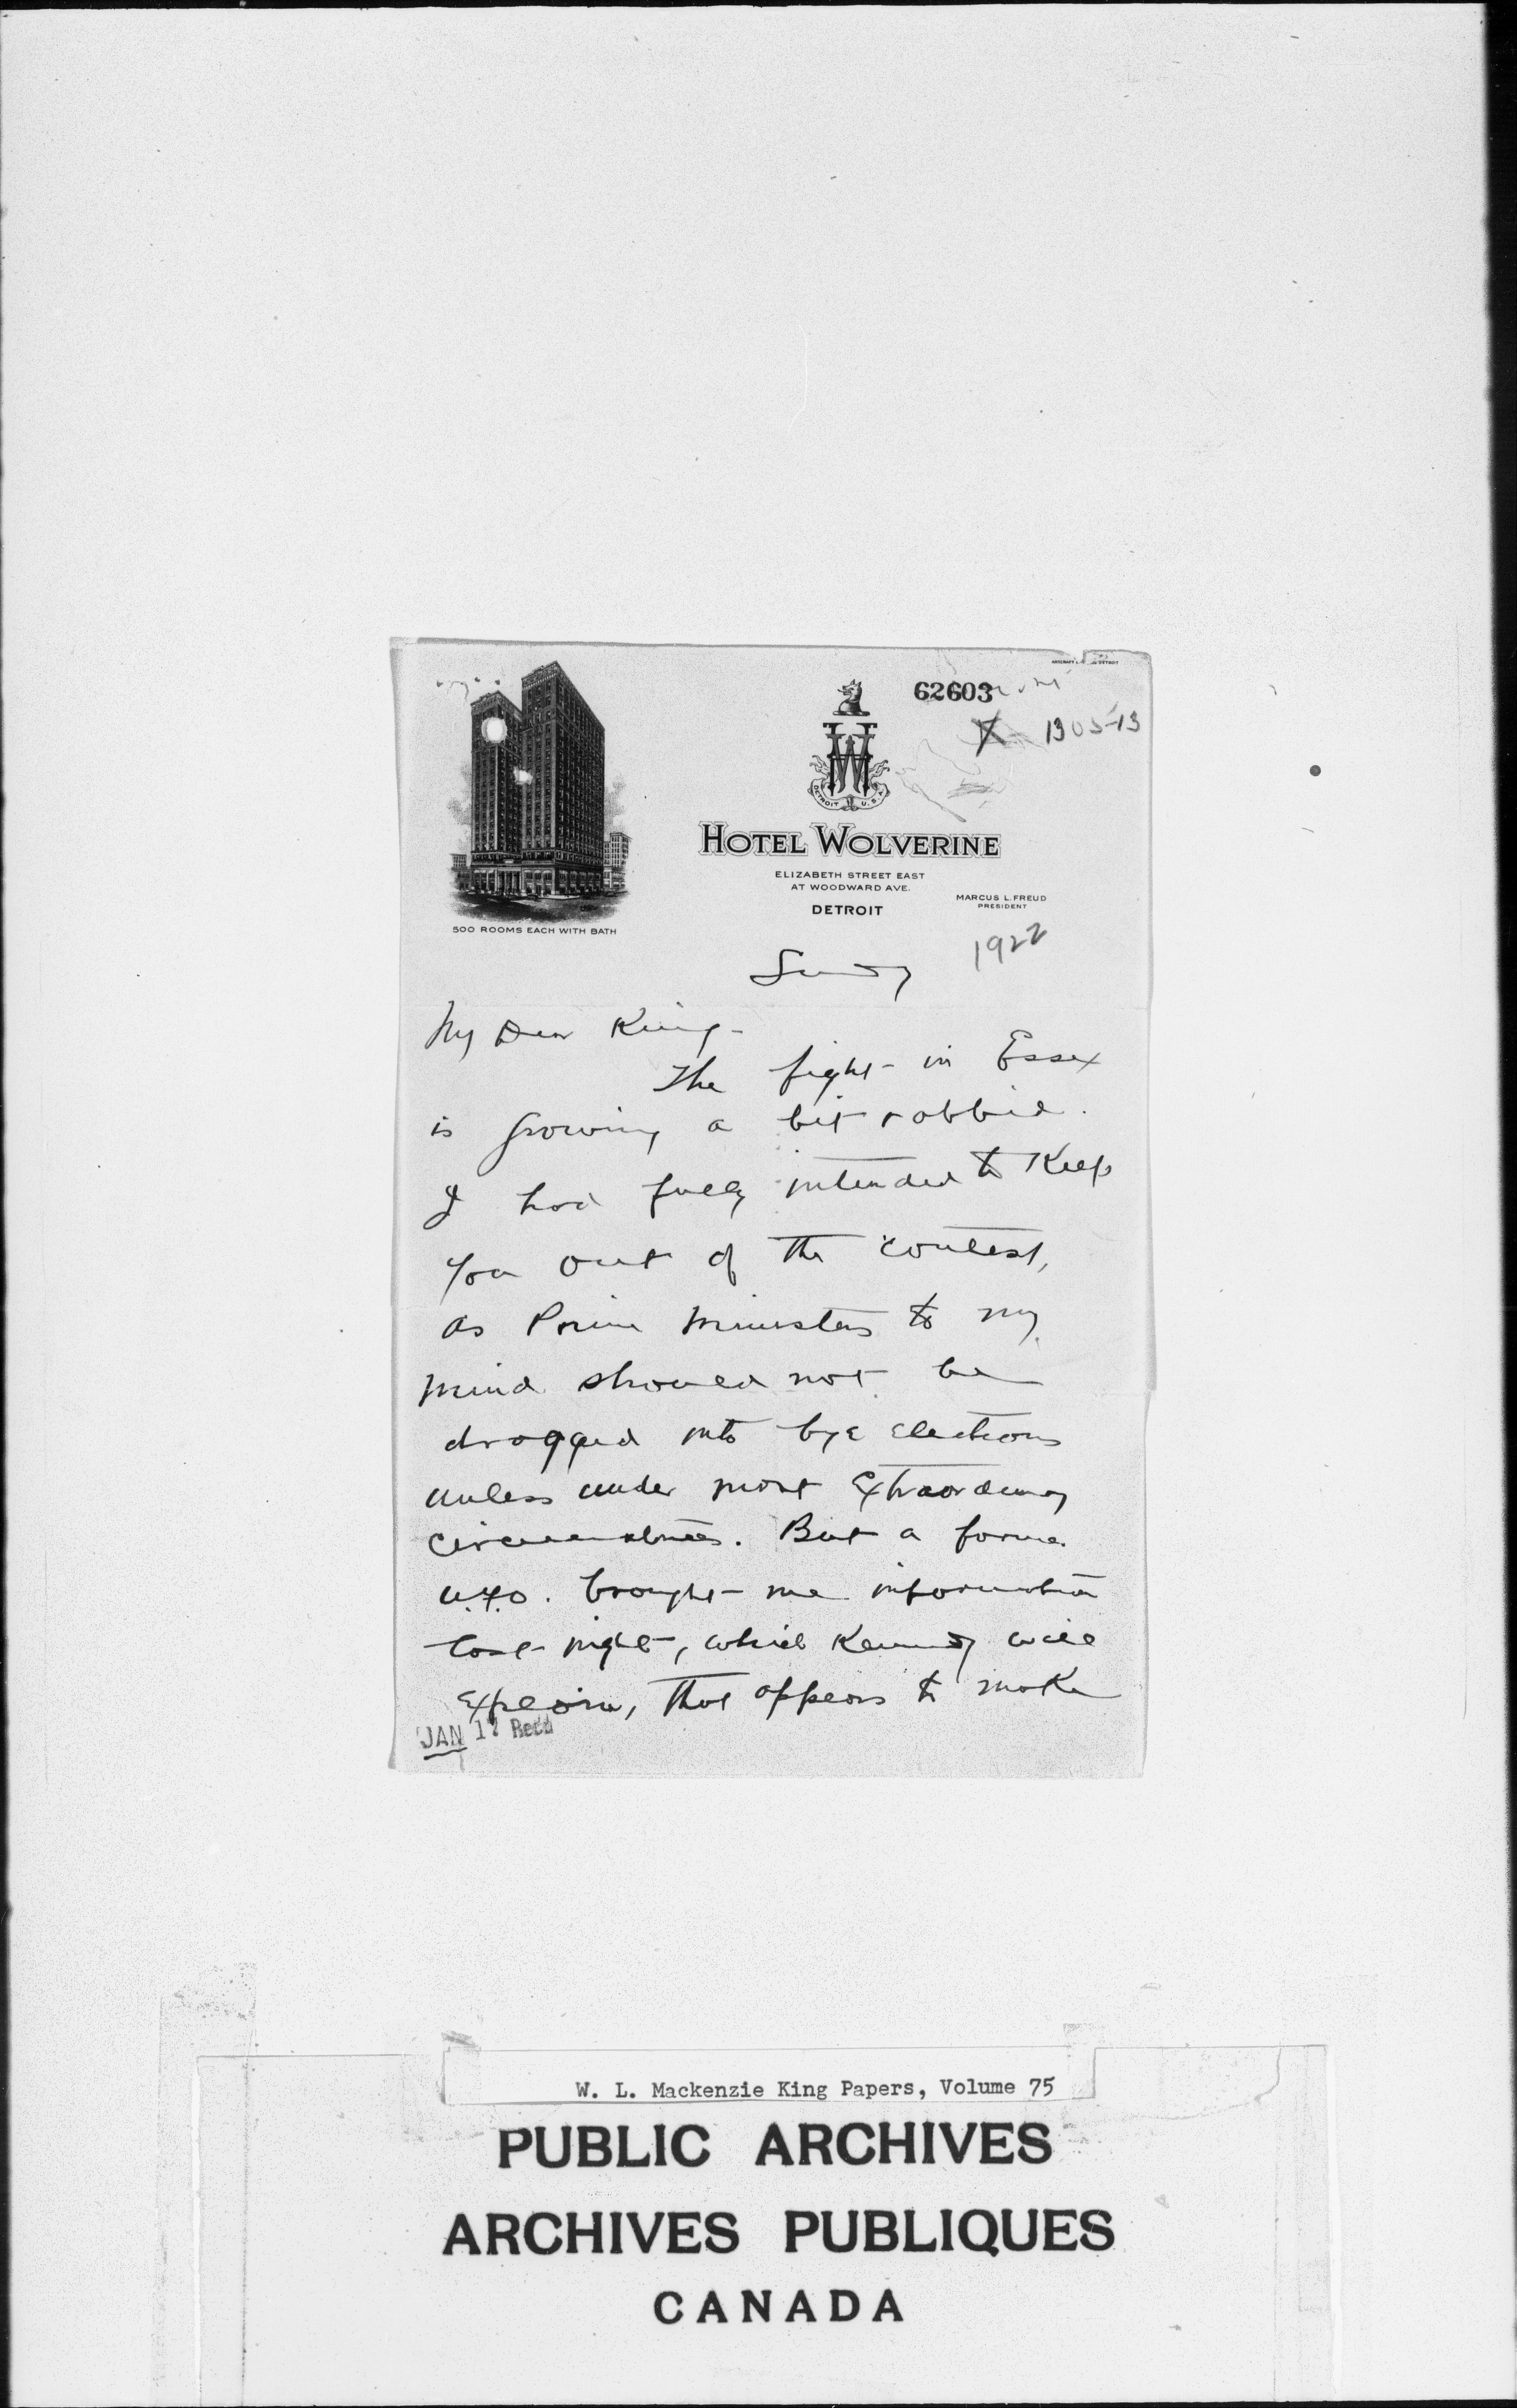 62603
X 1305-13
DETROIT U.S.A.
HOTEL WOLVERINE
ELIZABETH STREET EAST
AT WOODWARD AVE.
DETROIT
MARCUS L. FREUD
PRESIDENT
500 ROOMS EACH WITH BATH
1922
Sunday
My Dear King-
The fight in Essex
is growing a bit rabbid.
I had fully intended to keep
you out of the contest,
as Prime Ministers to my
mind should not be
dragged into bye elections
unless under most extraordinary
circumstances. But a former
U.F.O. brought me information
last night, which Kennedy will
explain, that appears to make
JAN 17 Recd
W. L. Mackenzie King Papers, Volume 75
PUBLIC ARCHIVES
ARCHIVES PUBLIQUES
CANADA